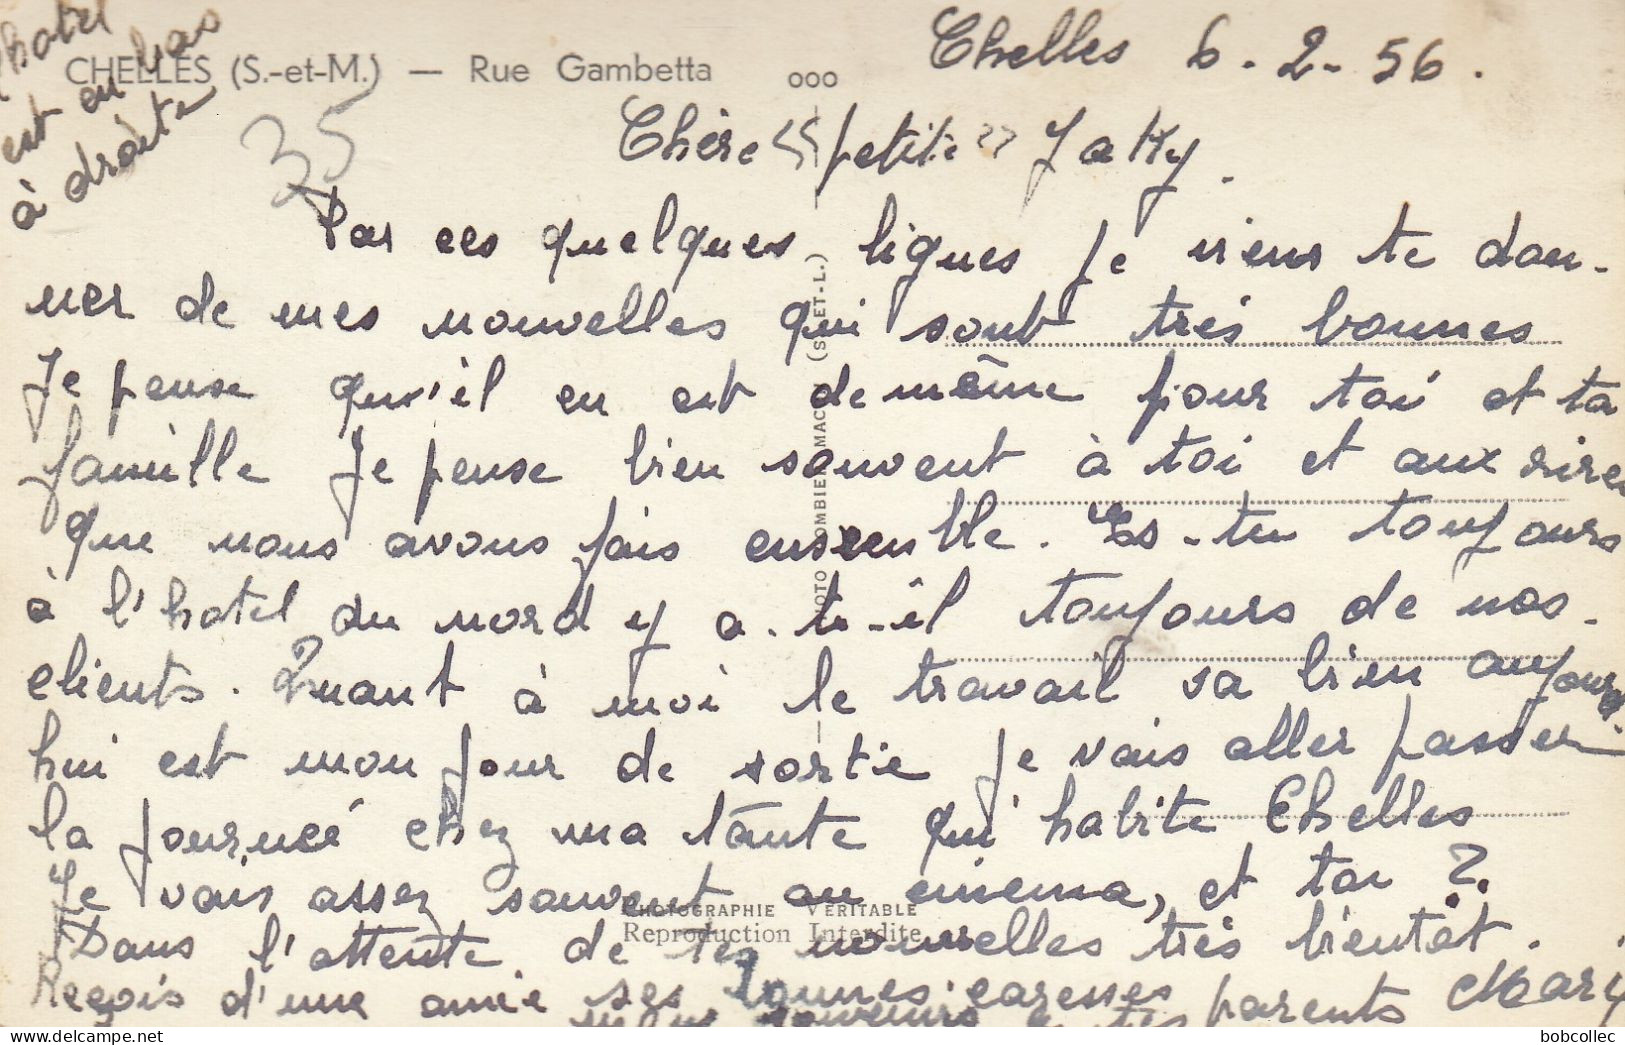 hotel
est en bas
à droite
CHELLES (S.-et-M.) — Rue Gambetta
ooo
Chelles 6-2-56.
35
Chère "petite" Jakky.
Par ces quelques lignes je viens te don-
ner de mes nouvelles qui sont très bonnes
Je pense qu'il en est de même pour toi et ta
famille Je pense bien souvent à toi et aux rires
que nous avons fais ensemble. Es-tu toujours
à l'hotel du nord y a-t-il toujours de nos
clients. Quant à moi le travail va bien aujourd'
hui est mon jour de sortie je vais aller passer
la journeé chez ma tante qui habite Chelles
Je vais assez souvent au cinema, et toi ?
Dans l'attente de tes nouvelles très bientôt.
Reçois d'une amie ses bonnes caresses
souvenirs à tes parents Mary
(S.-ET-L.)
PHOTOGRAPHIE VÉRITABLE
Reproduction Interdite
bobcollec